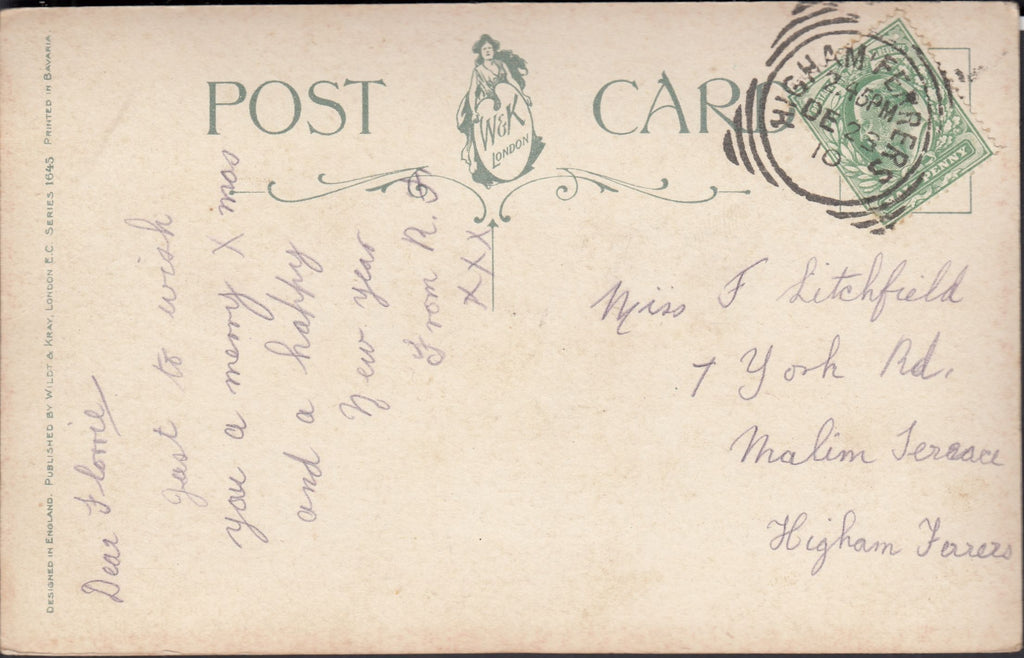 POST CARD
W&K
LONDON
HIGHAM FERRERS
2.45PM
DE 23
10
PENNY
DESIGNED IN ENGLAND. PUBLISHED BY WILDT & KRAY, LONDON E.C. SERIES 1645 PRINTED IN BAVARIA.
Dear Florrie
Just to wish
you a merry X mas
and a happy
New year
From R. F
XXX
Miss F Litchfield
7 York Rd.
Malim Terrace
Higham Ferrers